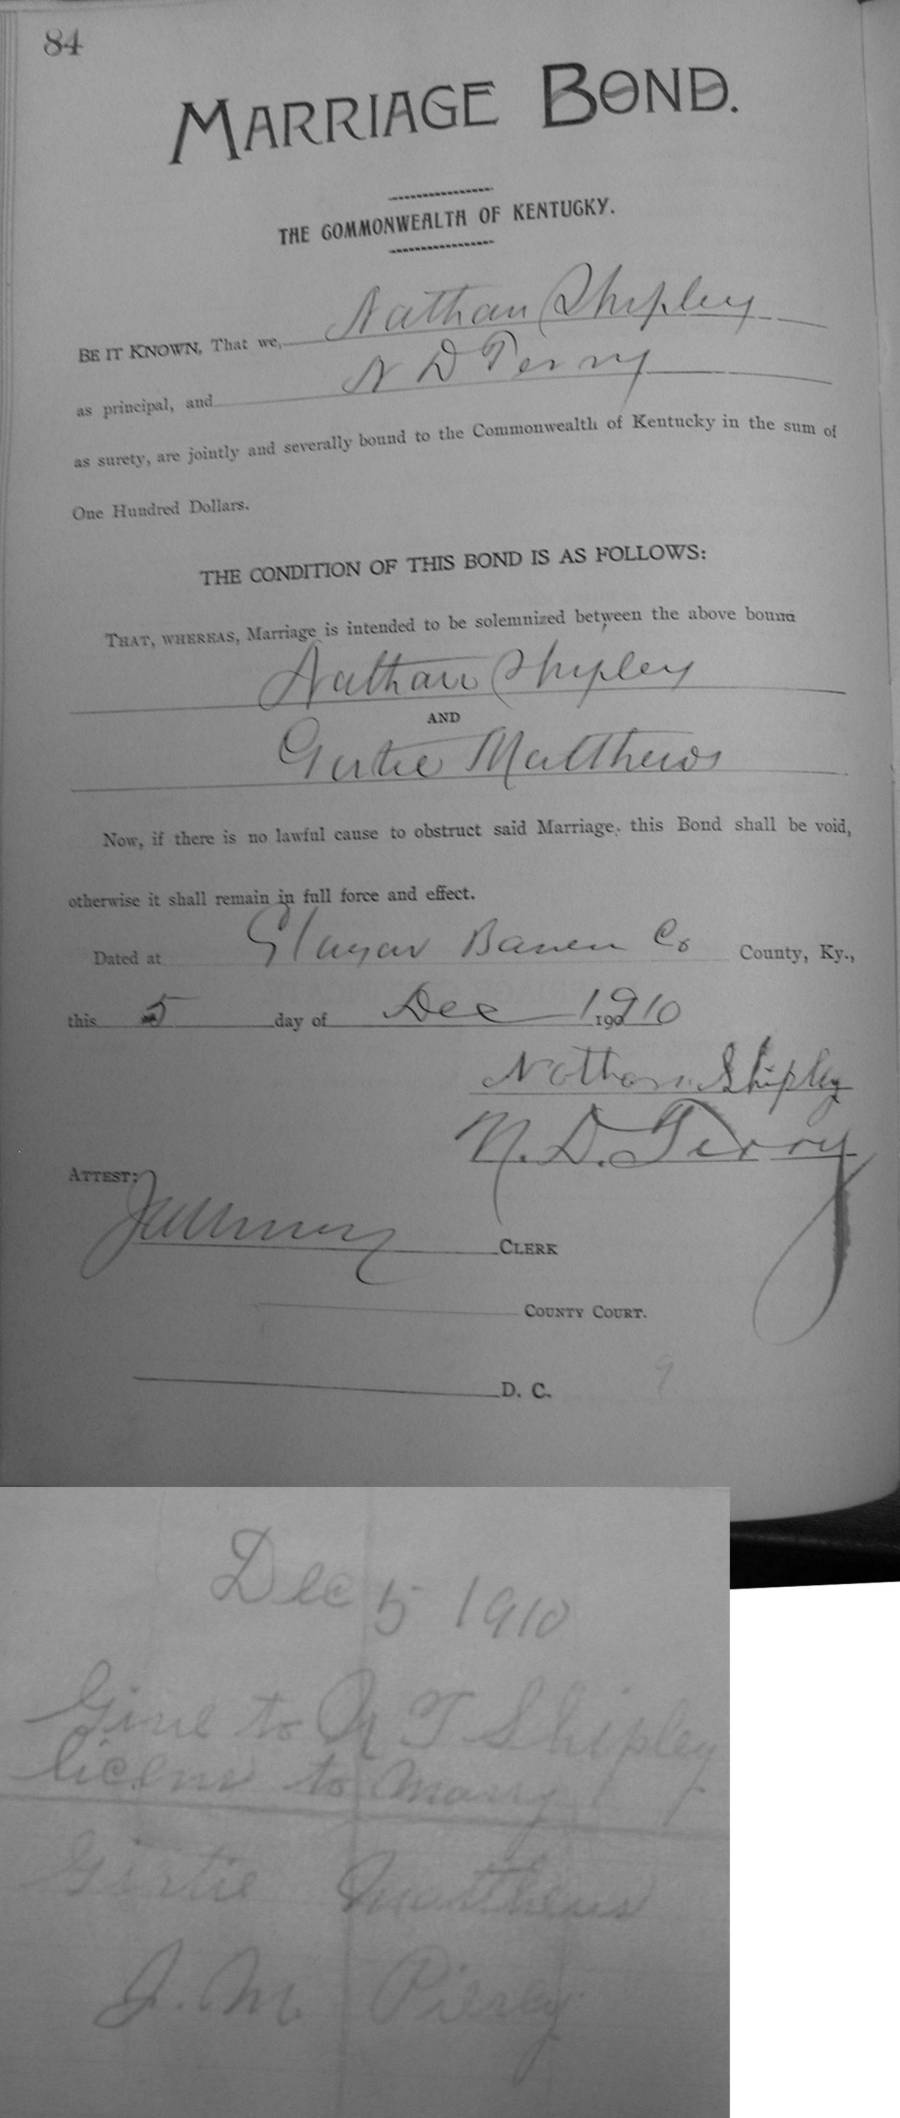 84
MARRIAGE BOND.
THE COMMONWEALTH OF KENTUCKY.
BE IT KNOWN, That we, Nathan Shipley
as principal, and N D Terry
as surety, are jointly and severally bound to the Commonwealth of Kentucky in the sum of
One Hundred Dollars.
THE CONDITION OF THIS BOND IS AS FOLLOWS:
THAT, WHEREAS, Marriage is intended to be solemnized between the above bound
Nathan Shipley
AND
Gertie Matthews
Now, if there is no lawful cause to obstruct said Marriage, this Bond shall be void,
otherwise it shall remain in full force and effect.
Dated at Barren Co County, Ky.,
this 5 day of Dec 1910
Nathan Shipley
N. D. Terry
ATTEST:
CLERK
COUNTY COURT.
D. C.
Dec 5 1910
Give to N T Shipley
to marry
Girtie Matthews
J. M. Piercy